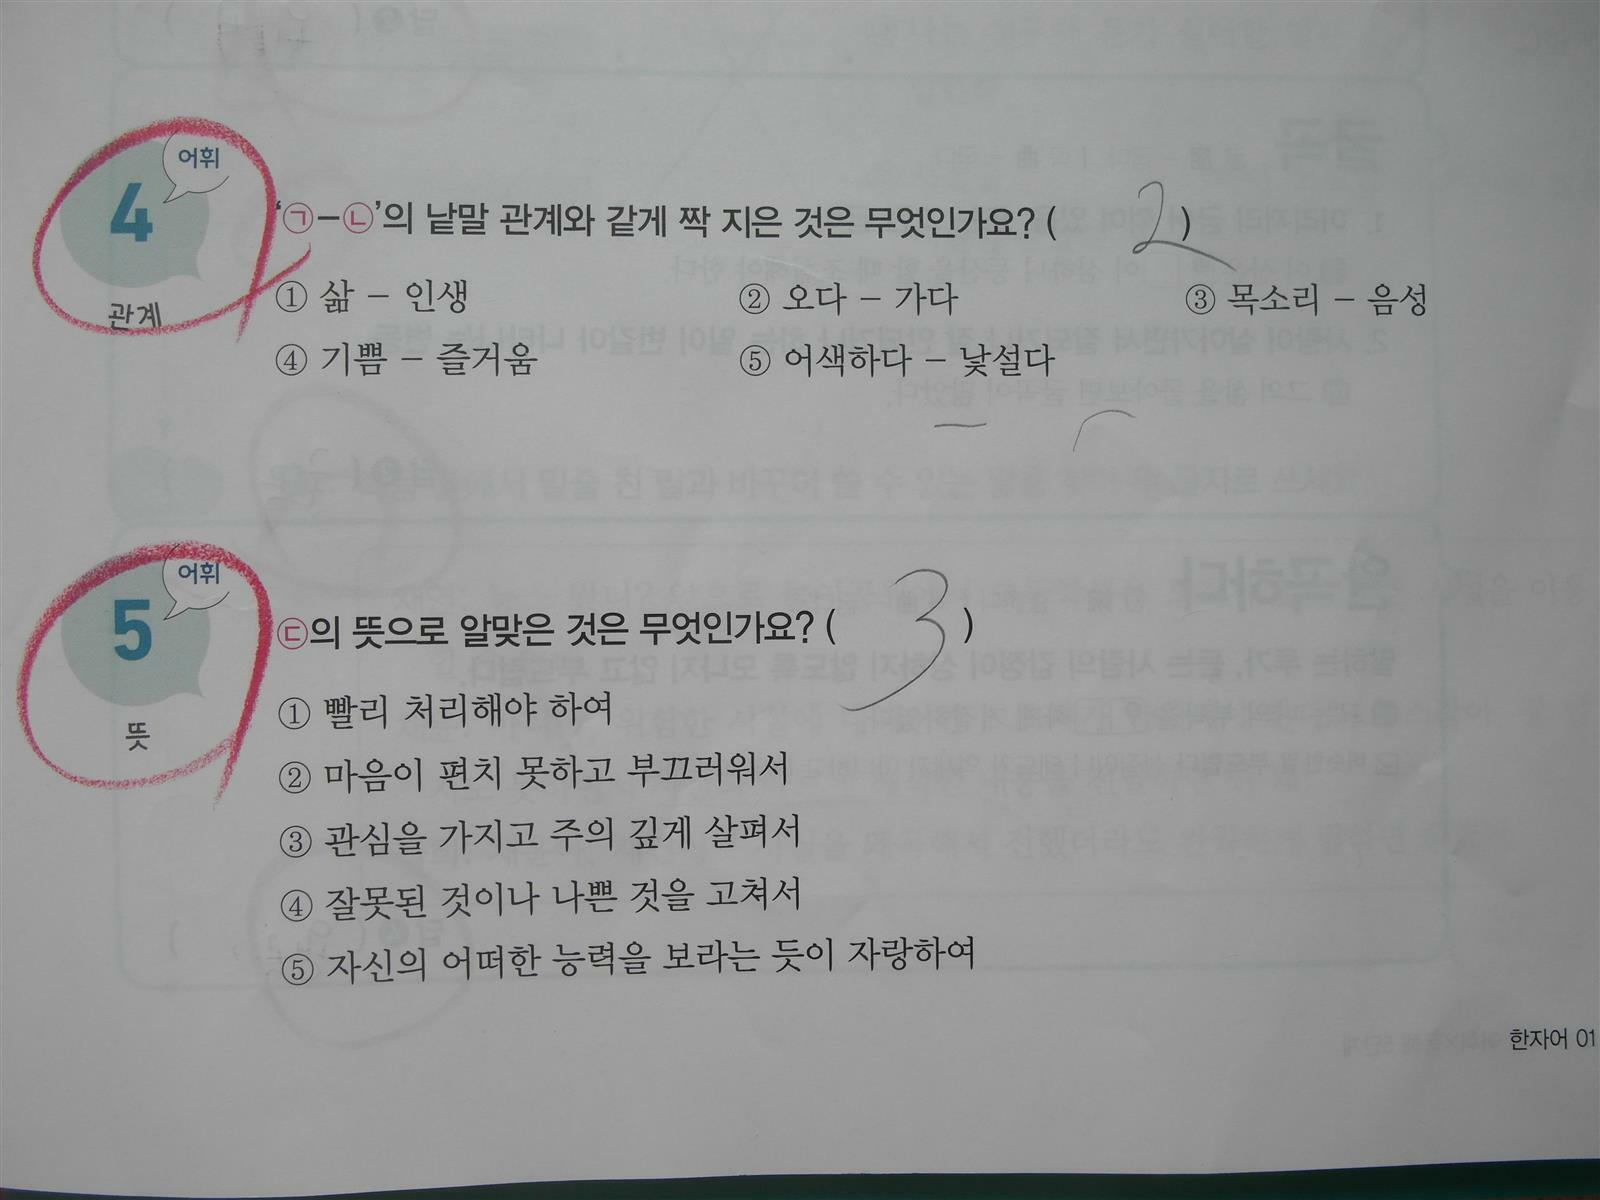 어휘
4
관계
'㉠-㉡'의 낱말 관계와 같게 짝 지은 것은 무엇인가요? ( 2 )
① 삶 - 인생 ② 오다 - 가다 ③ 목소리 - 음성
④ 기쁨 - 즐거움 ⑤ 어색하다 - 낯설다
어휘
5
뜻
㉢의 뜻으로 알맞은 것은 무엇인가요? ( 3 )
① 빨리 처리해야 하여
② 마음이 편치 못하고 부끄러워서
③ 관심을 가지고 주의 깊게 살펴서
④ 잘못된 것이나 나쁜 것을 고쳐서
⑤ 자신의 어떠한 능력을 보라는 듯이 자랑하여
한자어 01